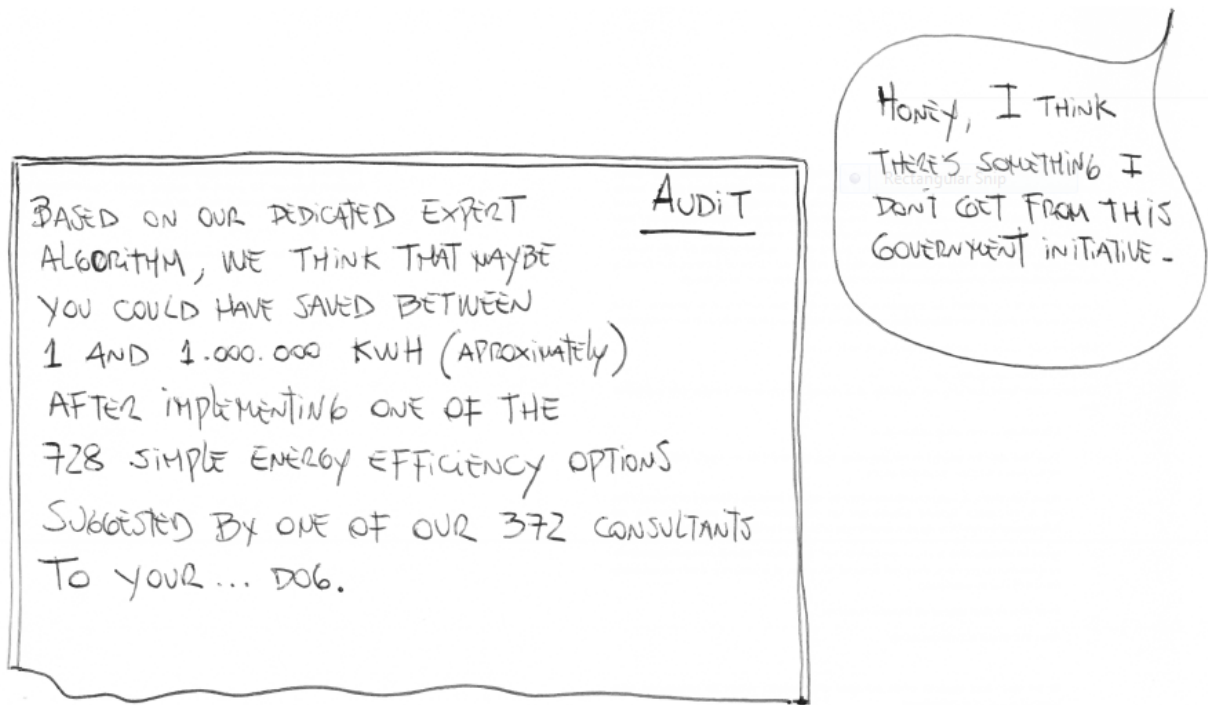 AUDIT
BASED ON OUR DEDICATED EXPERT
ALGORITHM, WE THINK THAT MAYBE
YOU COULD HAVE SAVED BETWEEN
1 AND 1.000.000 KWH (APROXIMATELY)
AFTER IMPLEMENTING ONE OF THE
728 SIMPLE ENERGY EFFICIENCY OPTIONS
SUGGESTED BY ONE OF OUR 372 CONSULTANTS
TO YOUR... DOG.
HONEY, I THINK
THERE'S SOMETHING I
DON'T GET FROM THIS
GOVERNMENT INITIATIVE-
Rectangular Snip